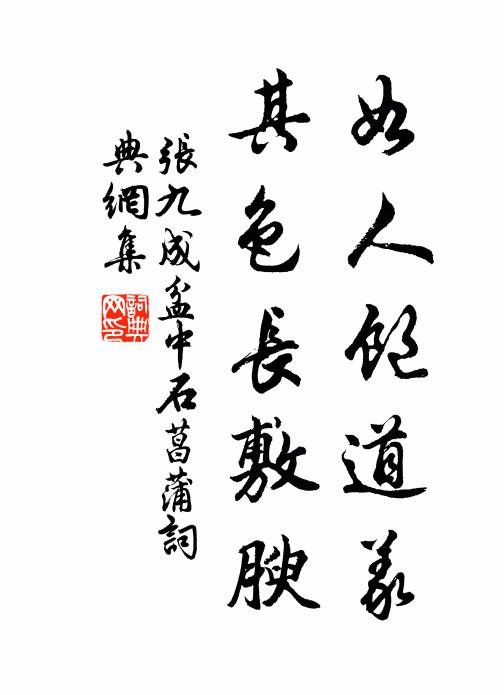 如人飽道義
其色長敷腴
張九成盆中石菖蒲詞
典網集
詞典網印